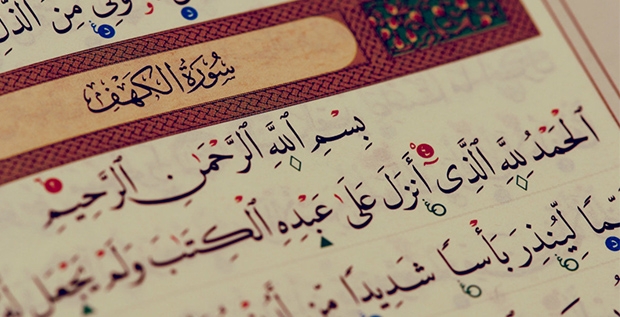 مِّنَ
سُورَةُ الكَهْفِ
بِسْمِ ٱللَّهِ ٱلرَّحْمَٰنِ ٱلرَّحِيمِ
ٱلْحَمْدُ لِلَّهِ ٱلَّذِىٓ أَنزَلَ عَلَىٰ عَبْدِهِ ٱلْكِتَٰبَ وَلَمْ يَجْعَل
لِّيُنذِرَ بَأْسًا شَدِيدًا مِّن